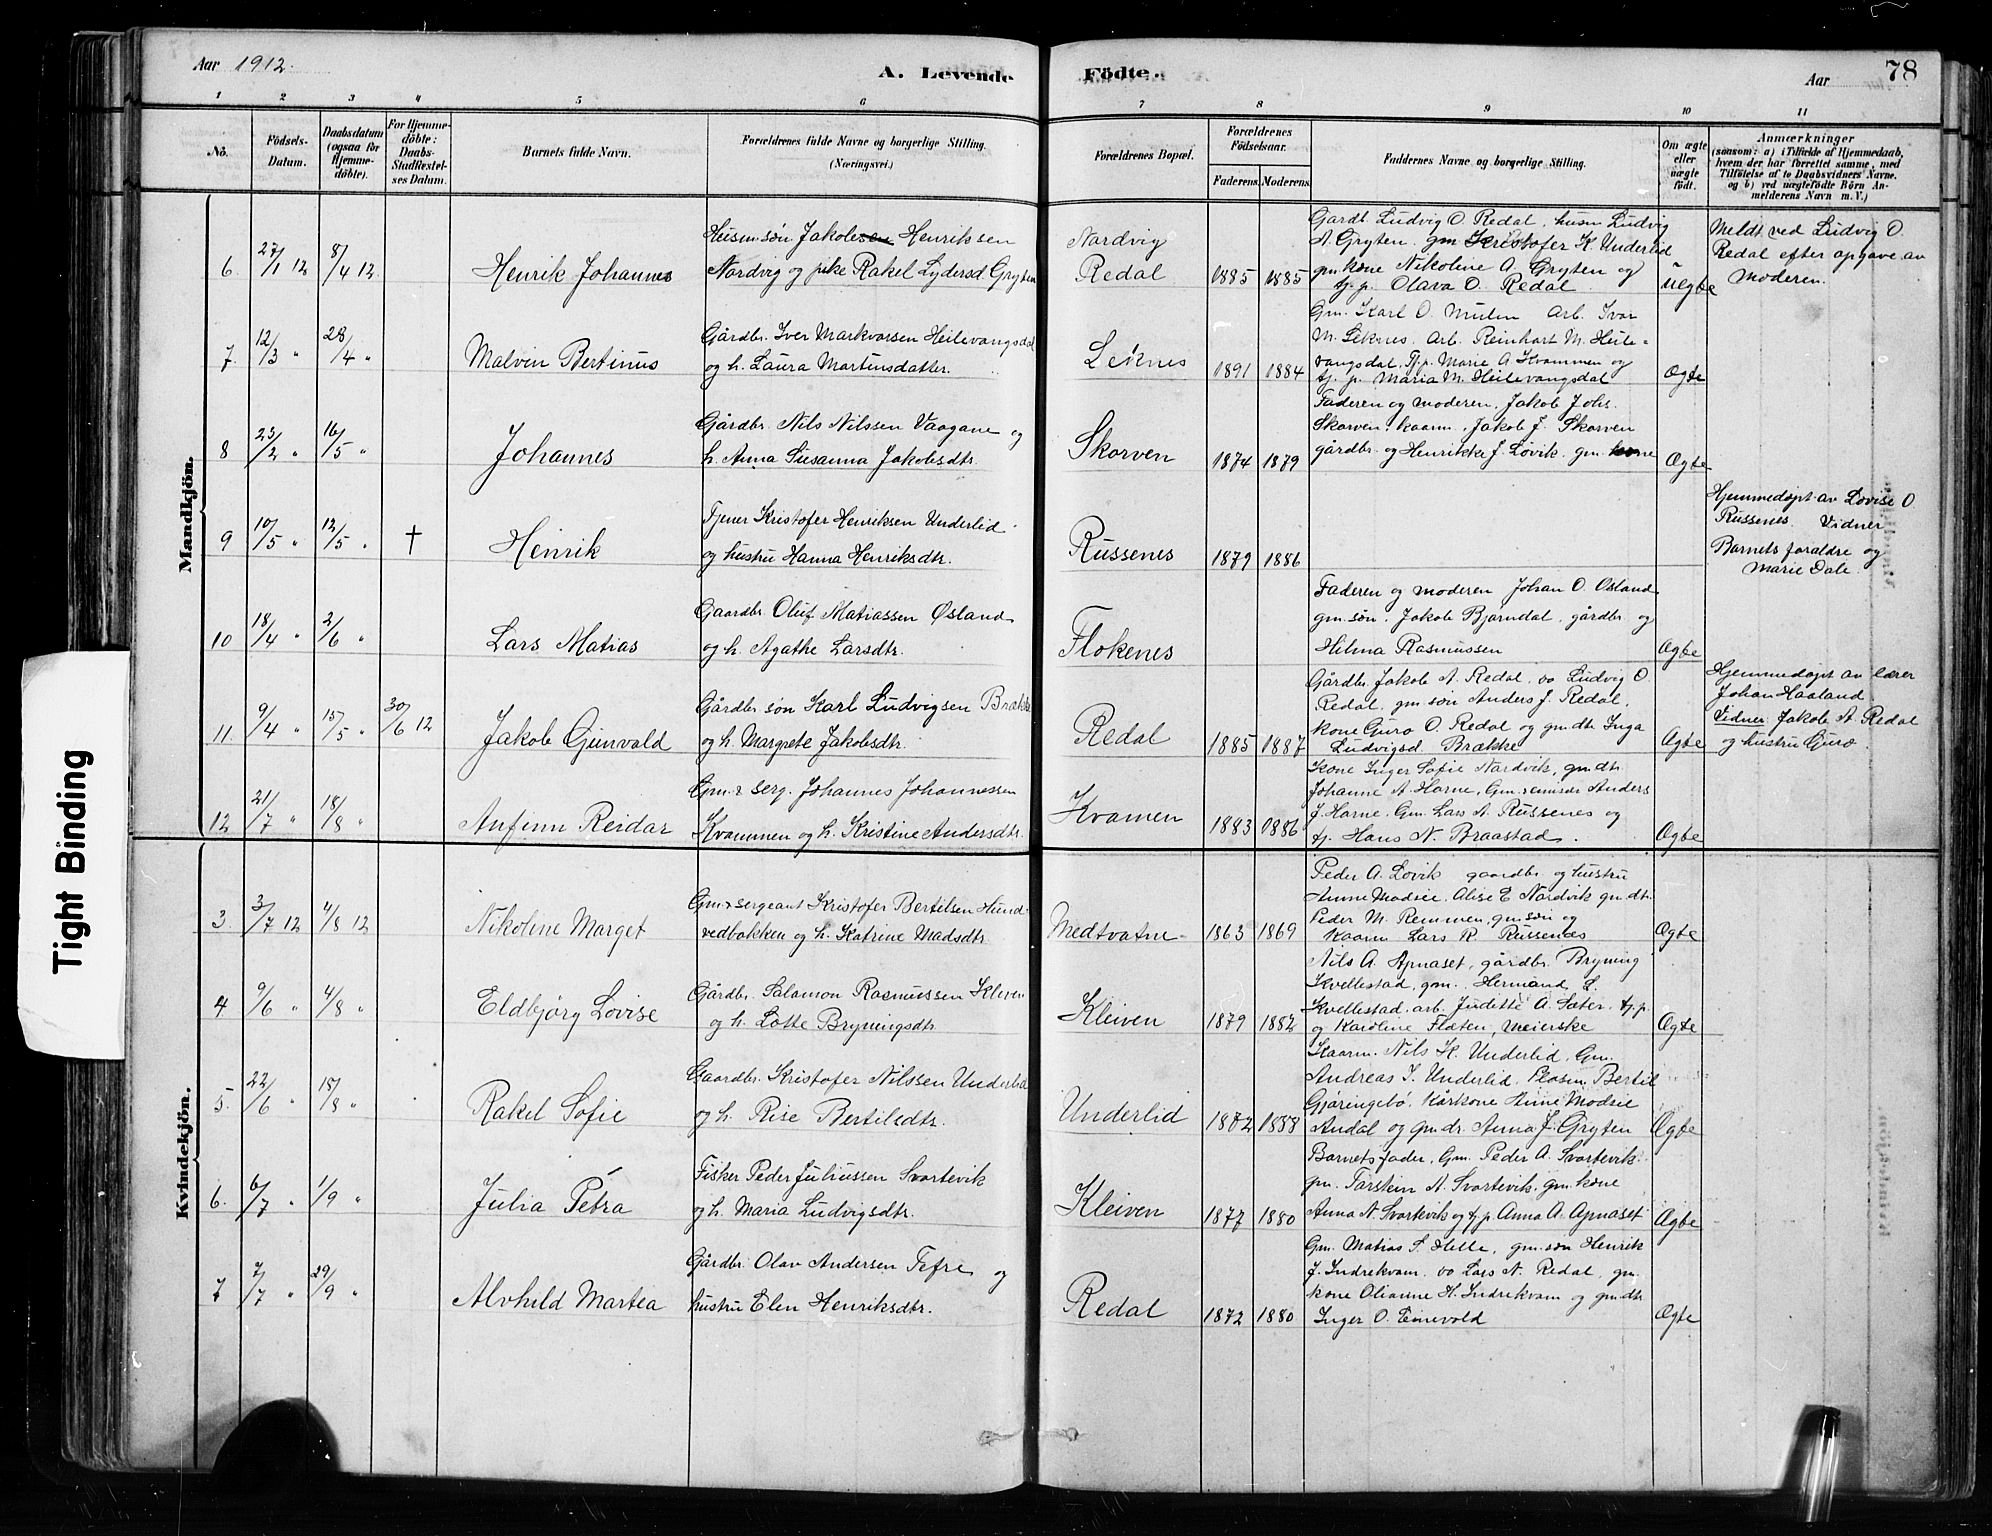 Aar 1912.
A. Levende
Födte.
Aar
78
1 2 3 4 5 6 7 8 9 10 11
No.
Födsels-Datum.
Daabsdatum (ogsaa för Hjemme-döbte).
For Hjemme-döbte: Daabs-Stadfæstel-ses Datum.
Barnets fulde Navn.
Forældrenes fulde Navne og borgerlige Stilling.
(Næringsvei.)
Forældrenes Bopæl.
Forældrenes Födselsaar.
Faderens. Moderens.
Faddernes Navne og borgerlige Stilling.
Om ægte eller uægte födt.
Anmærkninger
(saasom: a) i Tilfælde af Hjemmedaab, hvem der har forrettet samme, med Tilföielse af to Daabsvidners Navne. og b) ved uægtefödte Börn An-melderens Navn m. V.)
Mandkjön.
6 27/1 12 8/4 12.
Henrik Johannes
Husm.søn Jakob Henriksen
Nordvig og pike Rakel Lydersd Gryten
Nordvig
Redal
1885 1885
Gardb. Ludvig O. Redal, husm Ludvig
A. Gryten, gm Kristofer K. Underlid
gm.kone Nikoline A. Gryten og
tj. p. Olava O. Redal
uegte
Meldt ved Ludvig O.
Redal efter opgave av
moderen.
7 12/3 " 28/4 "
Malvin Bertinus
Gårdbr. Iver Markvorsen Heilevangsdal
og h. Laura Martinsdatter.
Leknes
1891 1884
Gm. Karl O. Mulen Arb. Ivar
M. Leknes. Arb. Reinhart M. Heile-
vangsdal, Tj.p. Marie A. Kvammen og
tj. p. Maria M. Heilevangsdal
Ægte
8 23/2 " 16/5 "
Johannes
Gårdbr. Nils Nilssen Vaagane og
h. Anna Susanna Jakobsdtr.
Skorven
1874 1879
Faderen og moderen, Jakob Johs.
Skorven, kaarm. Jakob J. Skorven
gårdbr. og Henrikke J. Løvik. gm. kone
Ægte
9 10/5 " 12/5 " †
Henrik
Tjener Kristofer Henriksen Underlid
og hustru Hanna Henriksdtr.
Russenes
1879 1886
Hjemmedøpt av Lovise O
Russenes. Vidner
Barnets foraldre og
Marie Dale.
10 18/4 " 2/6 "
Lars Matias
Gaardbr Oluf Matiassen Øsland
og h. Agathe Larsdtr.
Flokenes
Faderen og moderen Johan O. Osland
gm.søn. Jakob Bjørndal, gårdbr og
Hilma Rasmussen
Ægte
11 9/4 " 15/5 " 30/6 12
Jakob Gunvald
Gårdbr søn Karl Ludvigsen Brække
og h. Margrete Jakobsdtr.
Redal
1885 1887
Gårdbr. Jakob A. Redal, vo Ludvig O.
Redal, gm søn Anders J. Redal,
kone Guro O. Redal og gm.dtr. Inga
Ludvigsd. Brække
Ægte
Hjemmedøpt av lærer
Johan Haaland.
Vidner Jakob A. Redal
og hustru Guro.
12 21/7 " 18/8 "
Anfinn Reidar
Gm. & serg. Johannes Johannessen
Kvammen og h. Kristine Andersdtr.
Kvamen
1883 1886
Kone Inger Sofie Nordvik, gm.dtr.
Johanne A. Horne, Gm. Anders
J. Horne. Gm. Lars A. Russenes og
tj. Hans N. Braastad.
Ægte
Kvindekjön.
3 3/7 12 4/8 12
Nikoline Marget
Gm & sergeant Kristofer Bertilsen Hund-
vedbakken og h. Katrine Madsdtr.
Medtvatne
1863 1869
Peder A. Løvik gaardbr og hustru
Anne Madsie. Alise E Nordvik gm.dtr.
Peder M. Remmen, gm.søn og
Kaarm Lars R. Russenæs
Ægte
4 9/6 " 4/8 "
Eldbjørg Lovise
Gårdbr. Salamon Rasmussen Kleiven
og h. Lotte Bryningsdtr.
Kleiven
1879 1882
Nils A. Apnaset, gårdbr. Bryning
Kvellestad, gm. Hermand L.
Kvellestad. arb. Judette A. Sæter. tj.p.
og Karoline Flæten, Meierske
Ægte
5. 22/6 " 15/8 "
Rakel Sofie
Gaardbr. Kristofer Nilssen Underlid
og h. Rise Bertilsdtr.
Underlid
1872 1888
Kaarm. Nils K. Underlid, Gm.
Andreas I. Underlid. Plasm. Bertil
Gjøringebø, Kårkone Anne Madsie
Andal og gm.dr. Anna J. Gryten
Ægte
6. 6/7 " 1/9 "
Julia Petra
Fisker Peder Juliussen Svortevik
og h. Maria Ludvigsdtr.
Kleiven
1877 1880
Barnets fader, Gm. Peder A. Svortevik.
gm. Torstein A. Svortevik. gm.kone
Anna N. Svortevik og tj.p. Anna A. Apnaset
Ægte
7 7/7 " 29/9 "
Alvhild Martea
Gårdbr. Olav Andersen Tefre og
hustru Elen Henriksdtr.
Redal
1872 1880
Gm. Matias S. Helle, gm.søn Henrik
J. Indrekvam, vo Lars N. Redal, gm.
kone Olianne H. Indrekvam og gm.dtr.
Inger O. Einevold
Ægte
Tight Binding